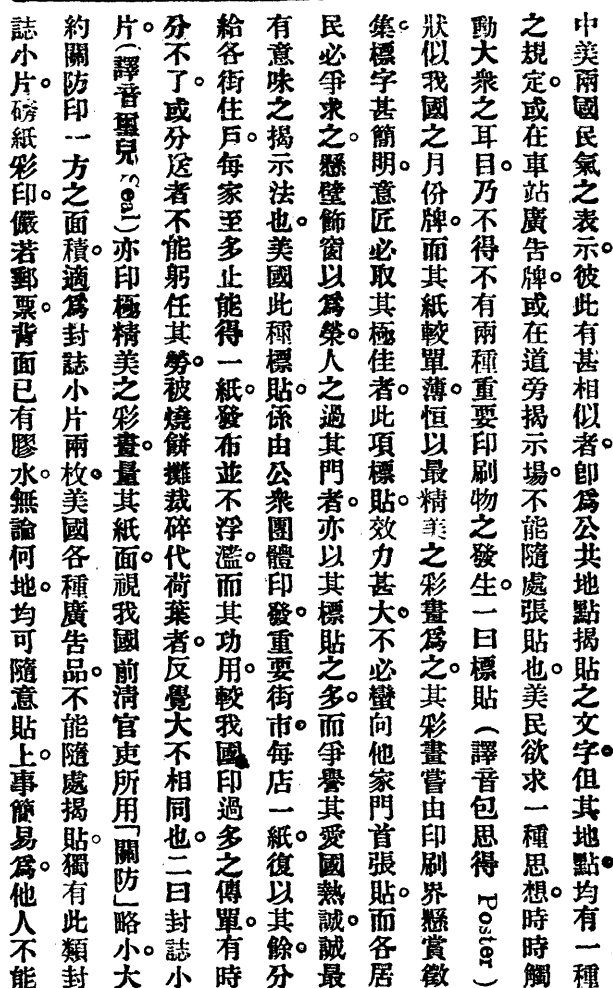 中美兩國民氣之表示。彼此有甚相似者。卽爲公共地點揭貼之文字。但其地點。均有一種
之規定。或在車站廣告牌。或在道旁揭示場。不能隨處張貼也。美民欲求一種思想。時時觸
動大衆之耳目。乃不得不有兩種重要印刷物之發生。一曰標貼（譯音包思得 Poster）
狀似我國之月份牌。而其紙較單薄。恒以最精美之彩畫爲之。其彩畫嘗由印刷界懸賞徵
集。標字甚簡明。意匠必取其極佳者。此項標貼。效力甚大。不必蠻向他家門首張貼。而各居
民必爭求之。懸壁飾窗以爲榮。人之過其門者。亦以其標貼之多。而爭譽其愛國熱誠。誠最
有意味之揭示法也。美國此種標貼。係由公衆團體印發。重要街市。每店一紙。復以其餘。分
給各街住戶。每家至多止能得一紙。發布並不浮濫。而其功用。較我國印過多之傳單。有時
分不了。或分送者不能躬任其勞。被燒餅攤裁碎代荷葉者。反覺大不相同也。二曰封誌小
片。（譯音璽兒 Seal）亦印極精美之彩畫。量其紙面。視我國前淸官吏所用「關防」略小。大
約關防印一方之面積。適爲封誌小片兩枚。美國各種廣告品。不能隨處揭貼。獨有此類封
誌小片。磅紙彩印。儼若郵票。背面已有膠水。無論何地。均可隨意貼上。事簡易爲。他人不能